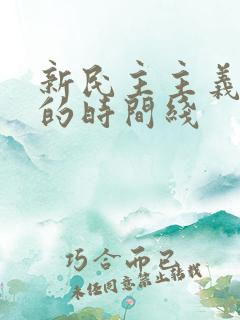 新民主主義
的時間綫
巧合而已
未经同意禁止转载